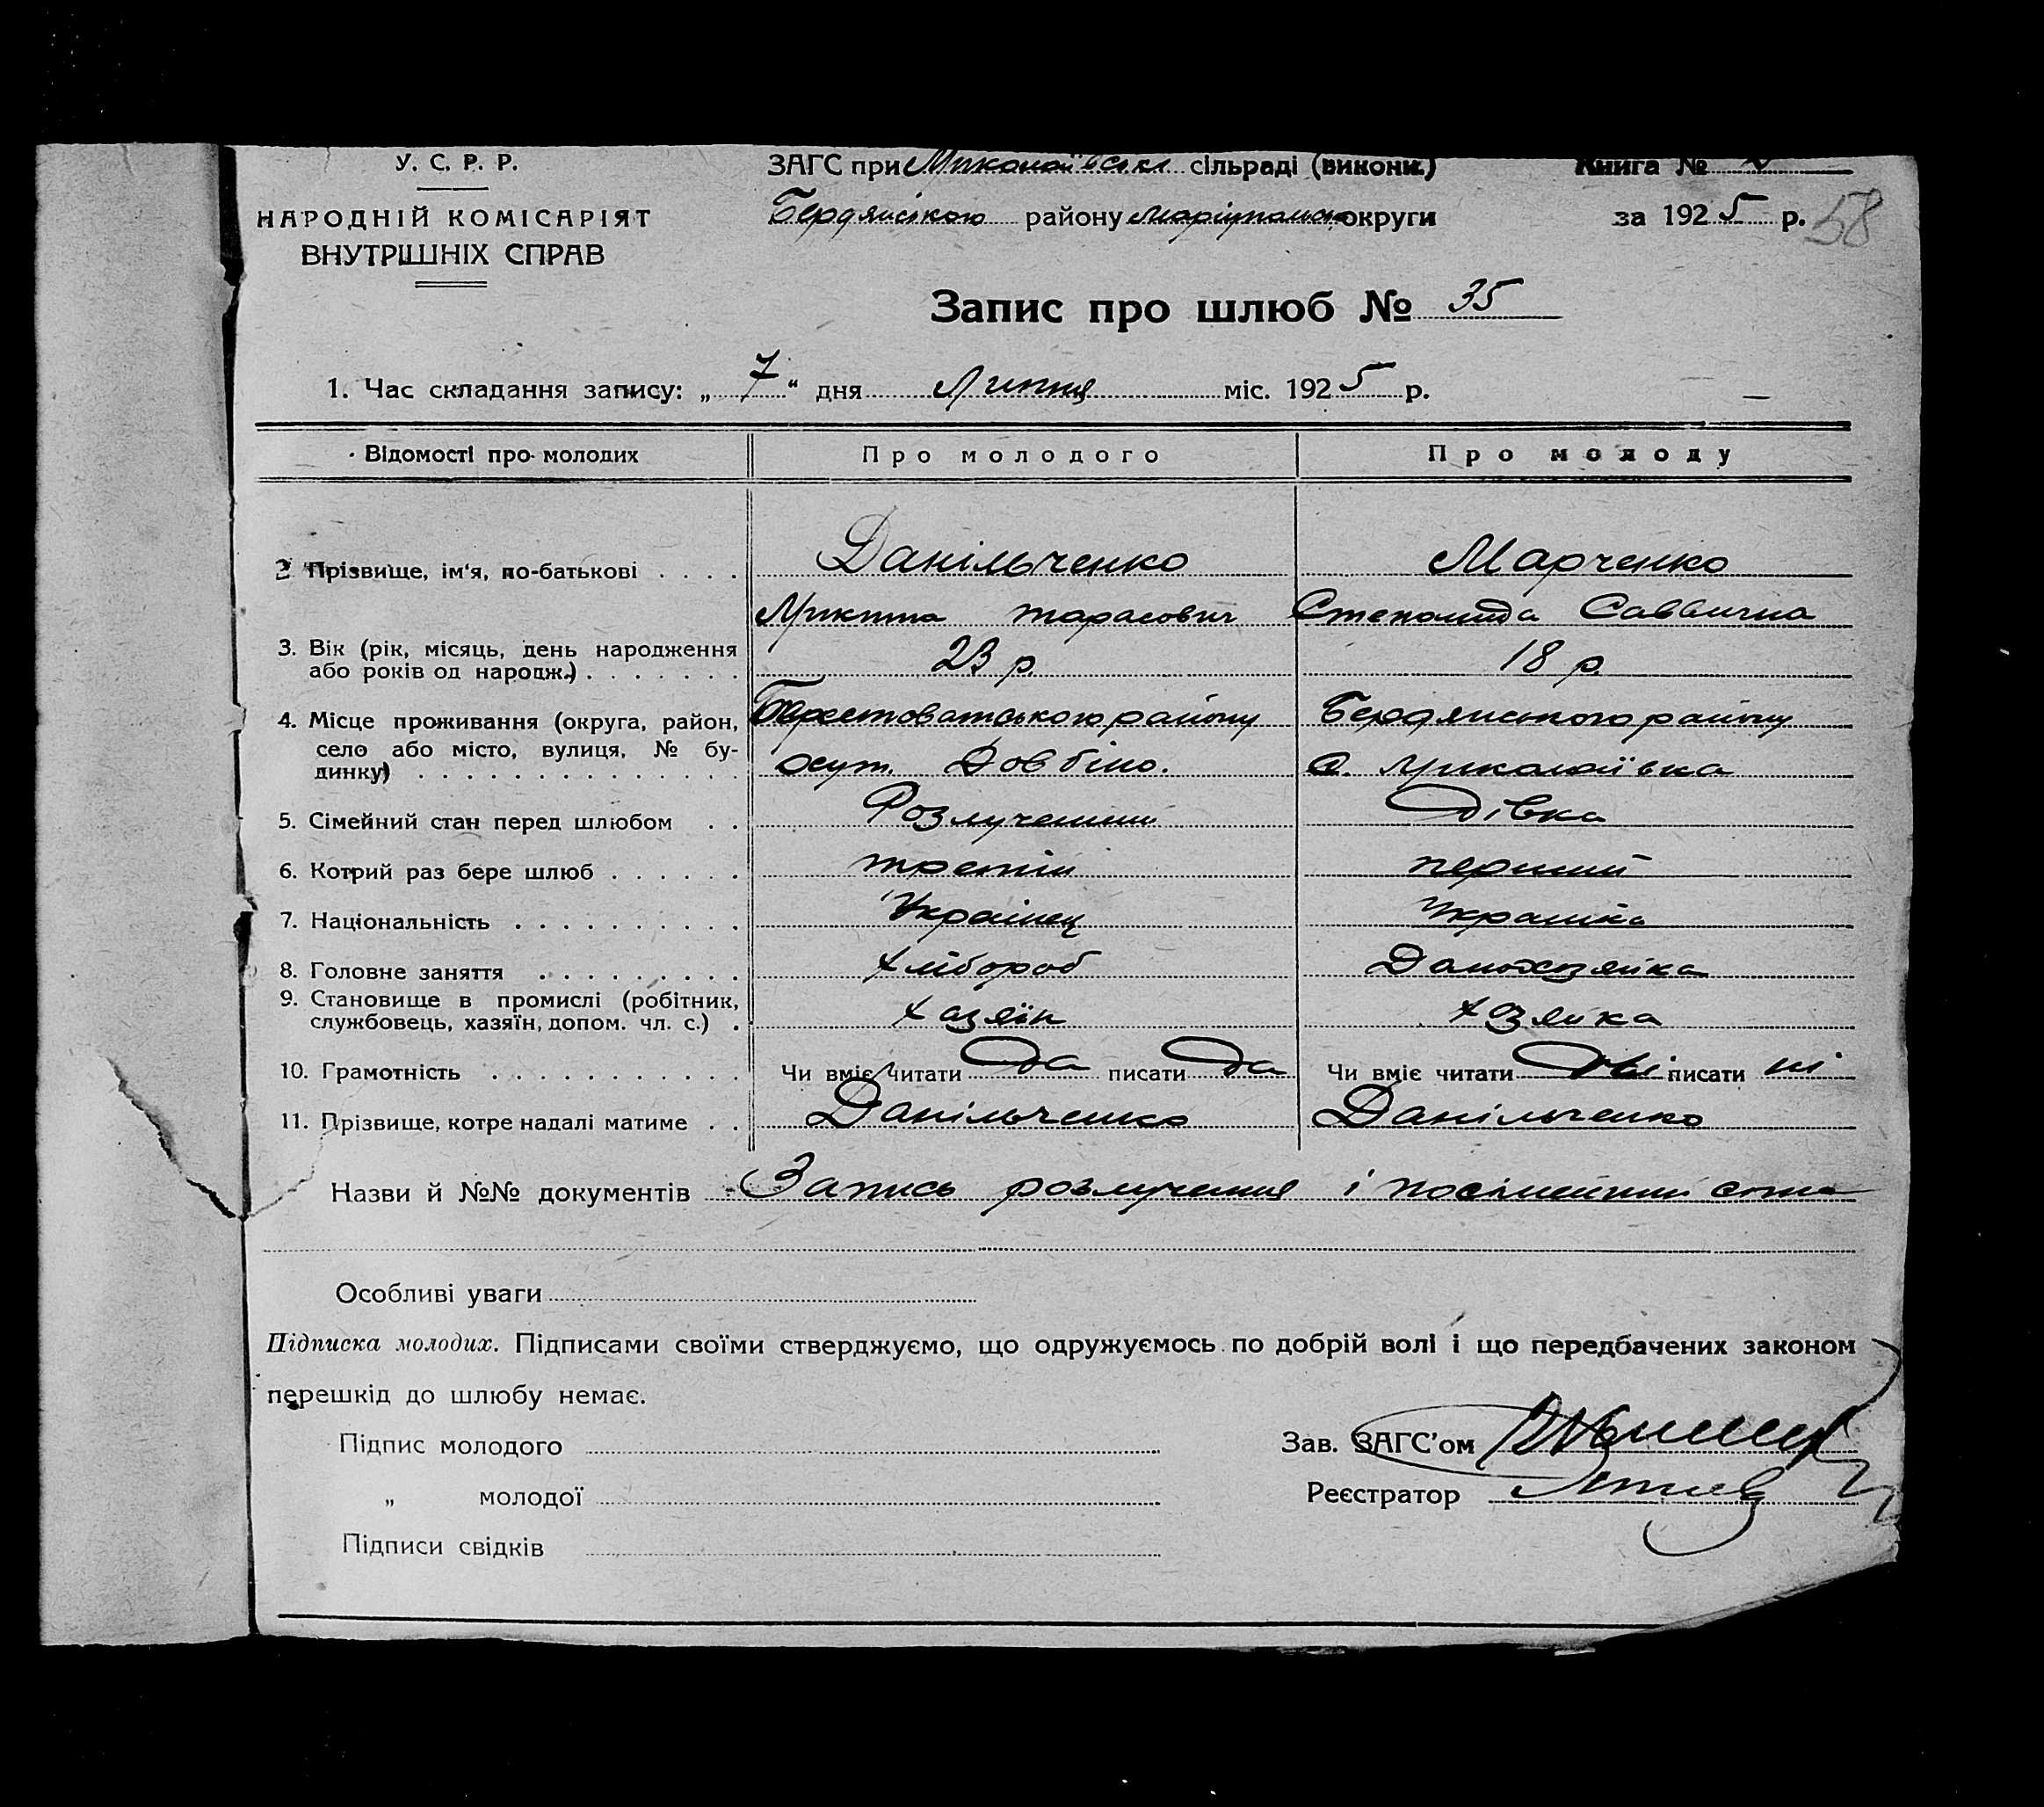 У. С. Р. Р.
НАРОДНІЙ КОМІСАРІЯТ
ВНУТРІШНІХ СПРАВ
ЗАГС при Миколаївськ. сільраді (викони.)
Бердянського району Маріупольсь округи
Книга №
за 1925 р. 58
Запис про шлюб № 35
1. Час складання запису: „ 7 “ дня Липня міс. 1925 р.
Відомості про молодих Про молодого Про молоду
2. Прізвище, ім'я, по-батькові . . . . Данільченко Марченко
Микита тарасович Степанида Саввична
3. Вік (рік, місяць, день народження
або років од народж.) . . . . . . . 23 р. 18 р.
4. Місце проживання (округа, район, Берестоватського району Бердянського району
село або місто, вулиця, № бу-
динку) . . . . . . . . . . . . . . хут. Довбіно. с. Миколаївка
5. Сімейний стан перед шлюбом . . Розлучений дівка
6. Котрий раз бере шлюб . . . . . . третій перший
7. Національність . . . . . . . . . . Українец Украінка
8. Головне заняття . . . . . . . . . Хлібороб Домохозяйка
9. Становище в промислі (робітник,
службовець, хазяїн, допом. чл. с.) . Хазяїн Хозяйка
10. Грамотність . . . . . . . . . . . Чи вміє читати да писати да Чи вміє читати писати ні
11. Прізвище, котре надалі матиме . . Данільченко Данільченко
Назви й №№ документів Запись розлучення і посімейний
Особливі уваги
Підписка молодих. Підписами своїми стверджуємо, що одружуємось по добрій волі і що передбачених законом
перешкід до шлюбу немає.
Підпис молодого
„ молодої
Підписи свідків
Зав. ЗАГС'ом
Реєстратор